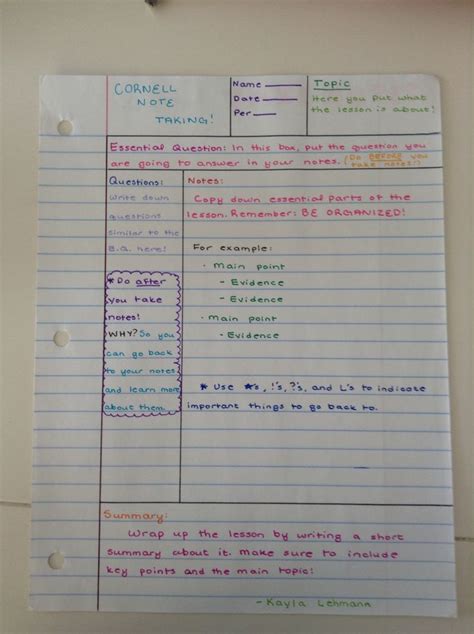 CORNELL
NOTE
TAKING!
Name
Date
Per
Topic
Here you put what
the lesson is about!
Essential Question: In this box, put the question you
are going to answer in your notes. (Do BEFORE you
take notes!)
Questions:
Write down
questions
similar to the
E.Q. here!
* Do after
you take
notes!
WHY? So you
can go back
to your notes
and learn more
about them.
Notes:
Copy down essential parts of the
lesson. Remember: BE ORGANIZED!
For example:
· Main point
- Evidence
- Evidence
· Main point
- Evidence
* Use ★'s, !'s, ?'s, and L's to indicate
important things to go back to.
Summary:
Wrap up the lesson by writing a short
summary about it. Make sure to include
key points and the main topic!
- Kayla Lehmann